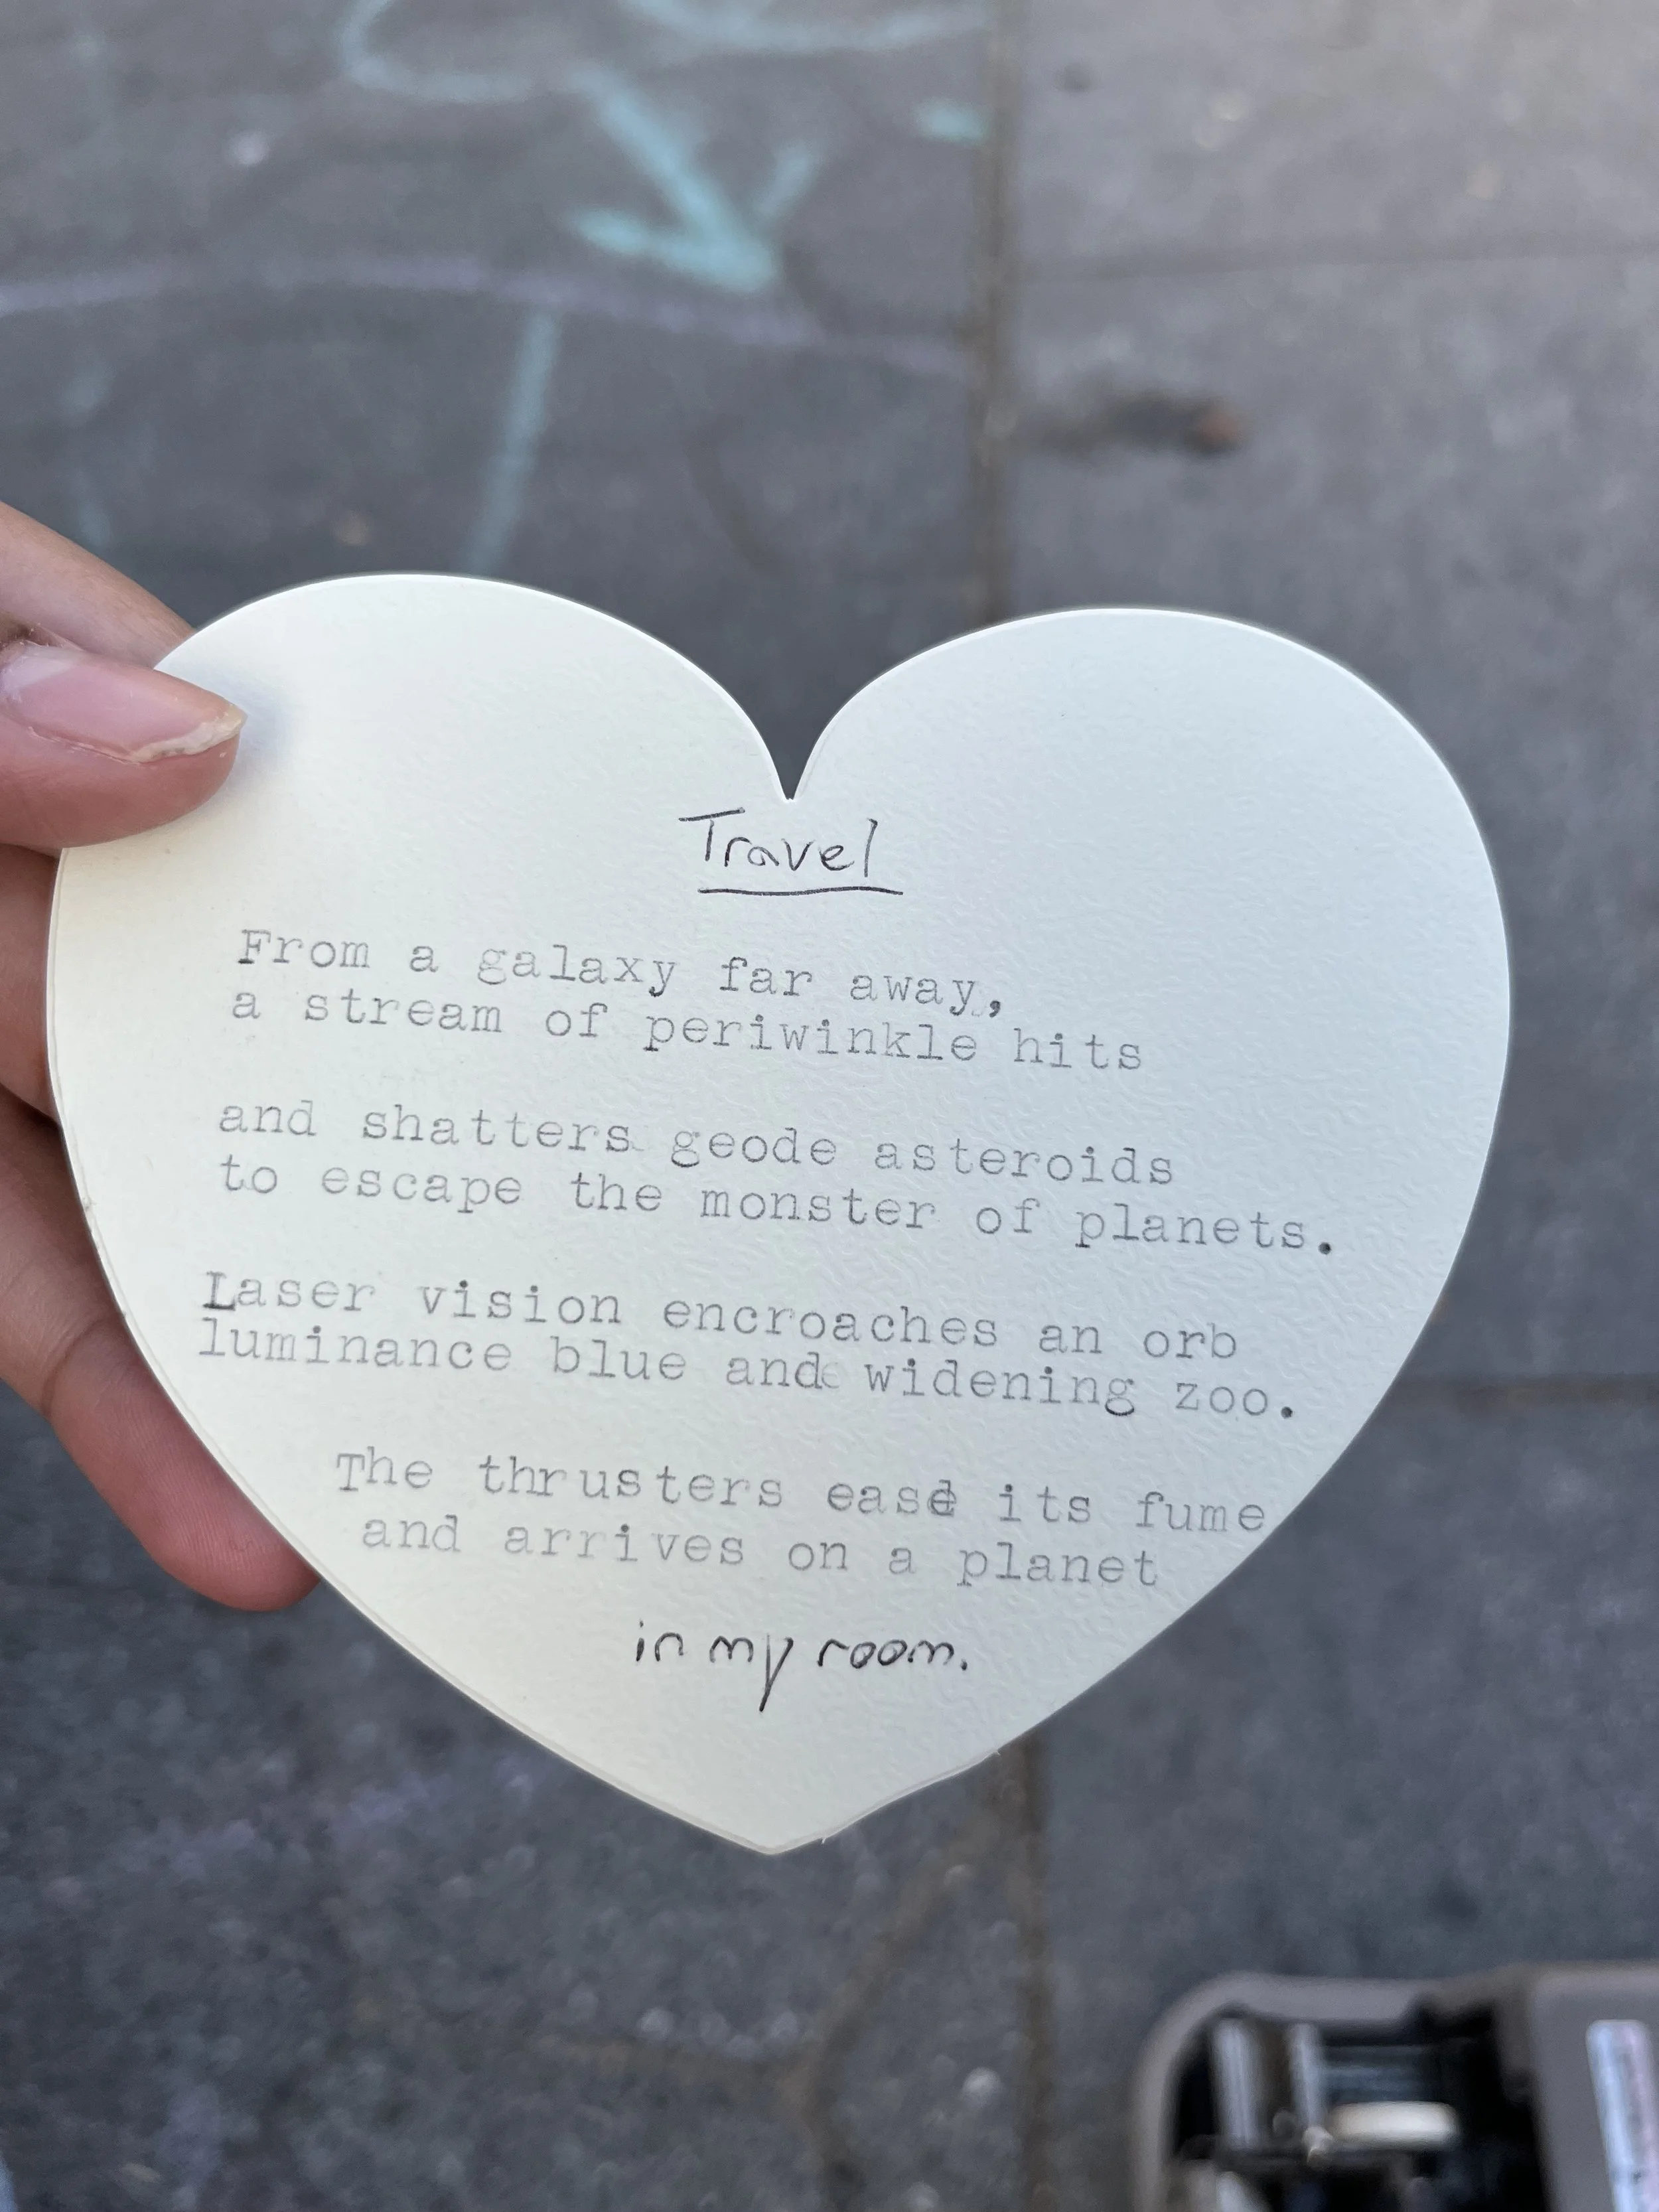 Travel
From a galaxy far away,
a stream of periwinkle hits
and shatters geode asteroids
to escape the monster of planets.
Laser vision encroaches an orb
luminance blue and widening zoo.
The thrusters ease its fume
and arrives on a planet
in my room.